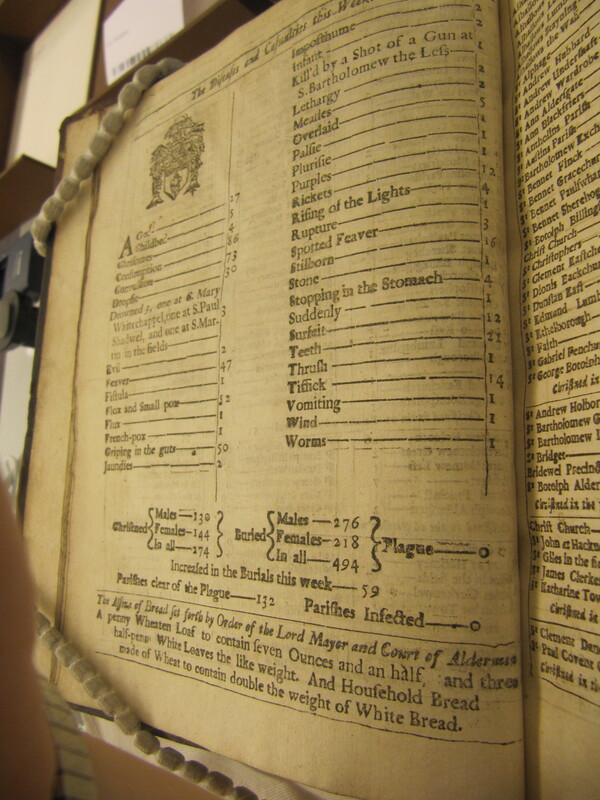 The Diseases and Casualties this Week
Aged 27
Childbed 5
Chrisomes 4
Consumption 86
Convulsion 73
Dropsie 30
Drowned 3, one at S. Mary
Whitechappel, one at S. Paul 3
Shadwel, and one at S. Mar-
tin in the fields
Evil 2
Feaver 47
Fistula 1
Flox and Small pox 52
Flux 1
French-pox 1
Griping in the guts 50
Jaundies 2
Imposthume 2
Infant 2
Kill'd by a Shot of a Gun at
S. Bartholomew the Less 1
Lethargy 2
Measles 2
Overlaid 5
Palsie 1
Plurisie 1
Purples 1
Rickets 12
Rising of the Lights 4
Rupture 1
Spotted Feaver 3
Stilborn 16
Stone 1
Stopping in the Stomach 4
Suddenly 1
Surfeit 12
Teeth 21
Thrush 1
Tissick 14
Vomiting 1
Wind 1
Worms 1
Christned Males—130 Females—144 In all—274
Buried Males—276 Females—218 In all—494
Plague—0
Increased in the Burials this week—59
Parishes clear of the Plague—132 Parishes Infected—0
The Assize of Bread set forth by Order of the Lord Mayor and Court of Aldermen
A penny Wheaten Loaf to contain seven Ounces and an half, and three
half-penny White Loaves the like weight. And Houshold Bread
made of Wheat to contain double the weight of White Bread.
St Andrew Hubbard
St Andrew Undershaft
St Andrew Wardrobe
St Ann Aldersgate
St Ann Blackfriers
St Antholins Parish
St Austins Parish
St Bartholomew Exch
St Bennet Finck
St Bennet Gracechur
St Bennet Paulswharf
St Bennet Sherehog
St Botolph Billing
Christ Church
St Christophers
St Clement Eastche
St Dionis Backchur
St Dunstan East
St Edmund Lumb
St Ethelborough
St Faith
St Gabriel Fenchur
St George Botolph
Christned in
St Andrew Holbor
St Bartholomew G
St Bartholomew L
St Bridget
Bridewel Precinct
St Botolph Alder
Christned in the
Christ Church
St John at Hackn
St Giles in the fi
St James Clerken
St Katharine Tow
Christned in
St Clement Dan
St Paul Covent G
Christned in th